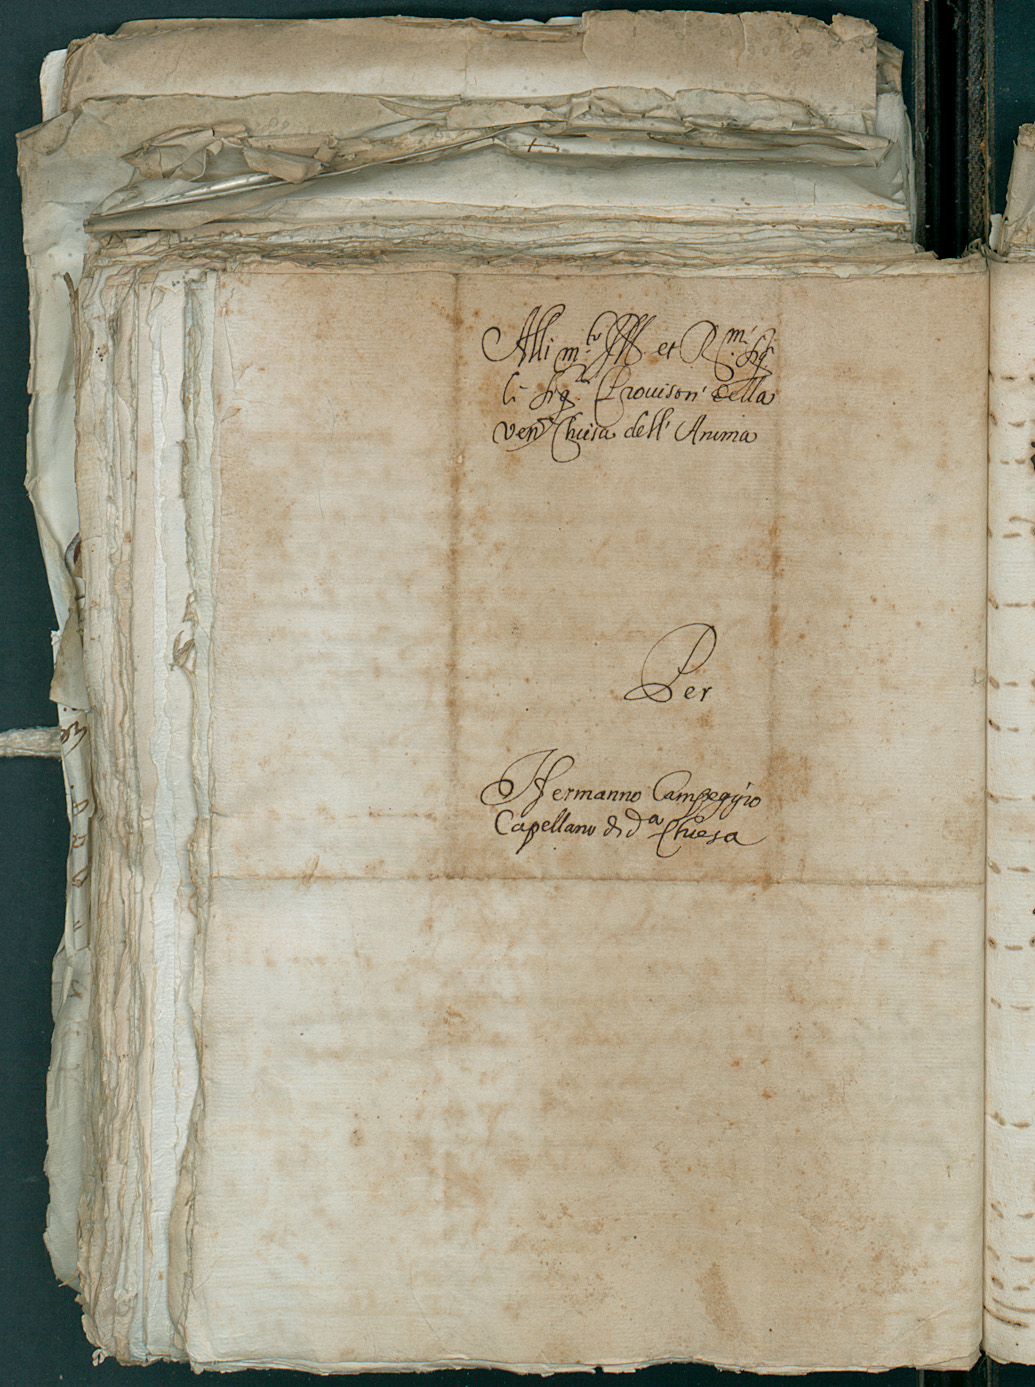 Alli m.to Ill et R.mi Sig.
li Sig.ri Provisori della
Ven. Chiesa dell' Anima
Per
Hermanno Campeggio
Capellano di d.a Chiesa